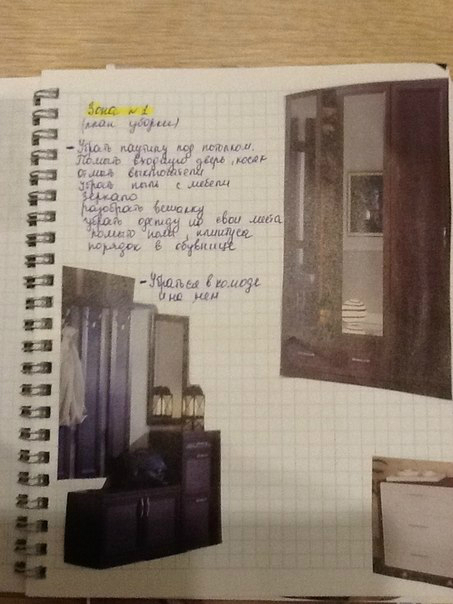 Зона №1
(план уборки)
- Убрать паутину под потолком.
Помыть входную дверь, косяк
Отмыть выключатели
Убрать пыль с мебели
Зеркало
разобрать вешалку
убрать одежду на свои места
Помыть полы, плинтуса
порядок в обувнице
- Убраться в комоде
и на нем